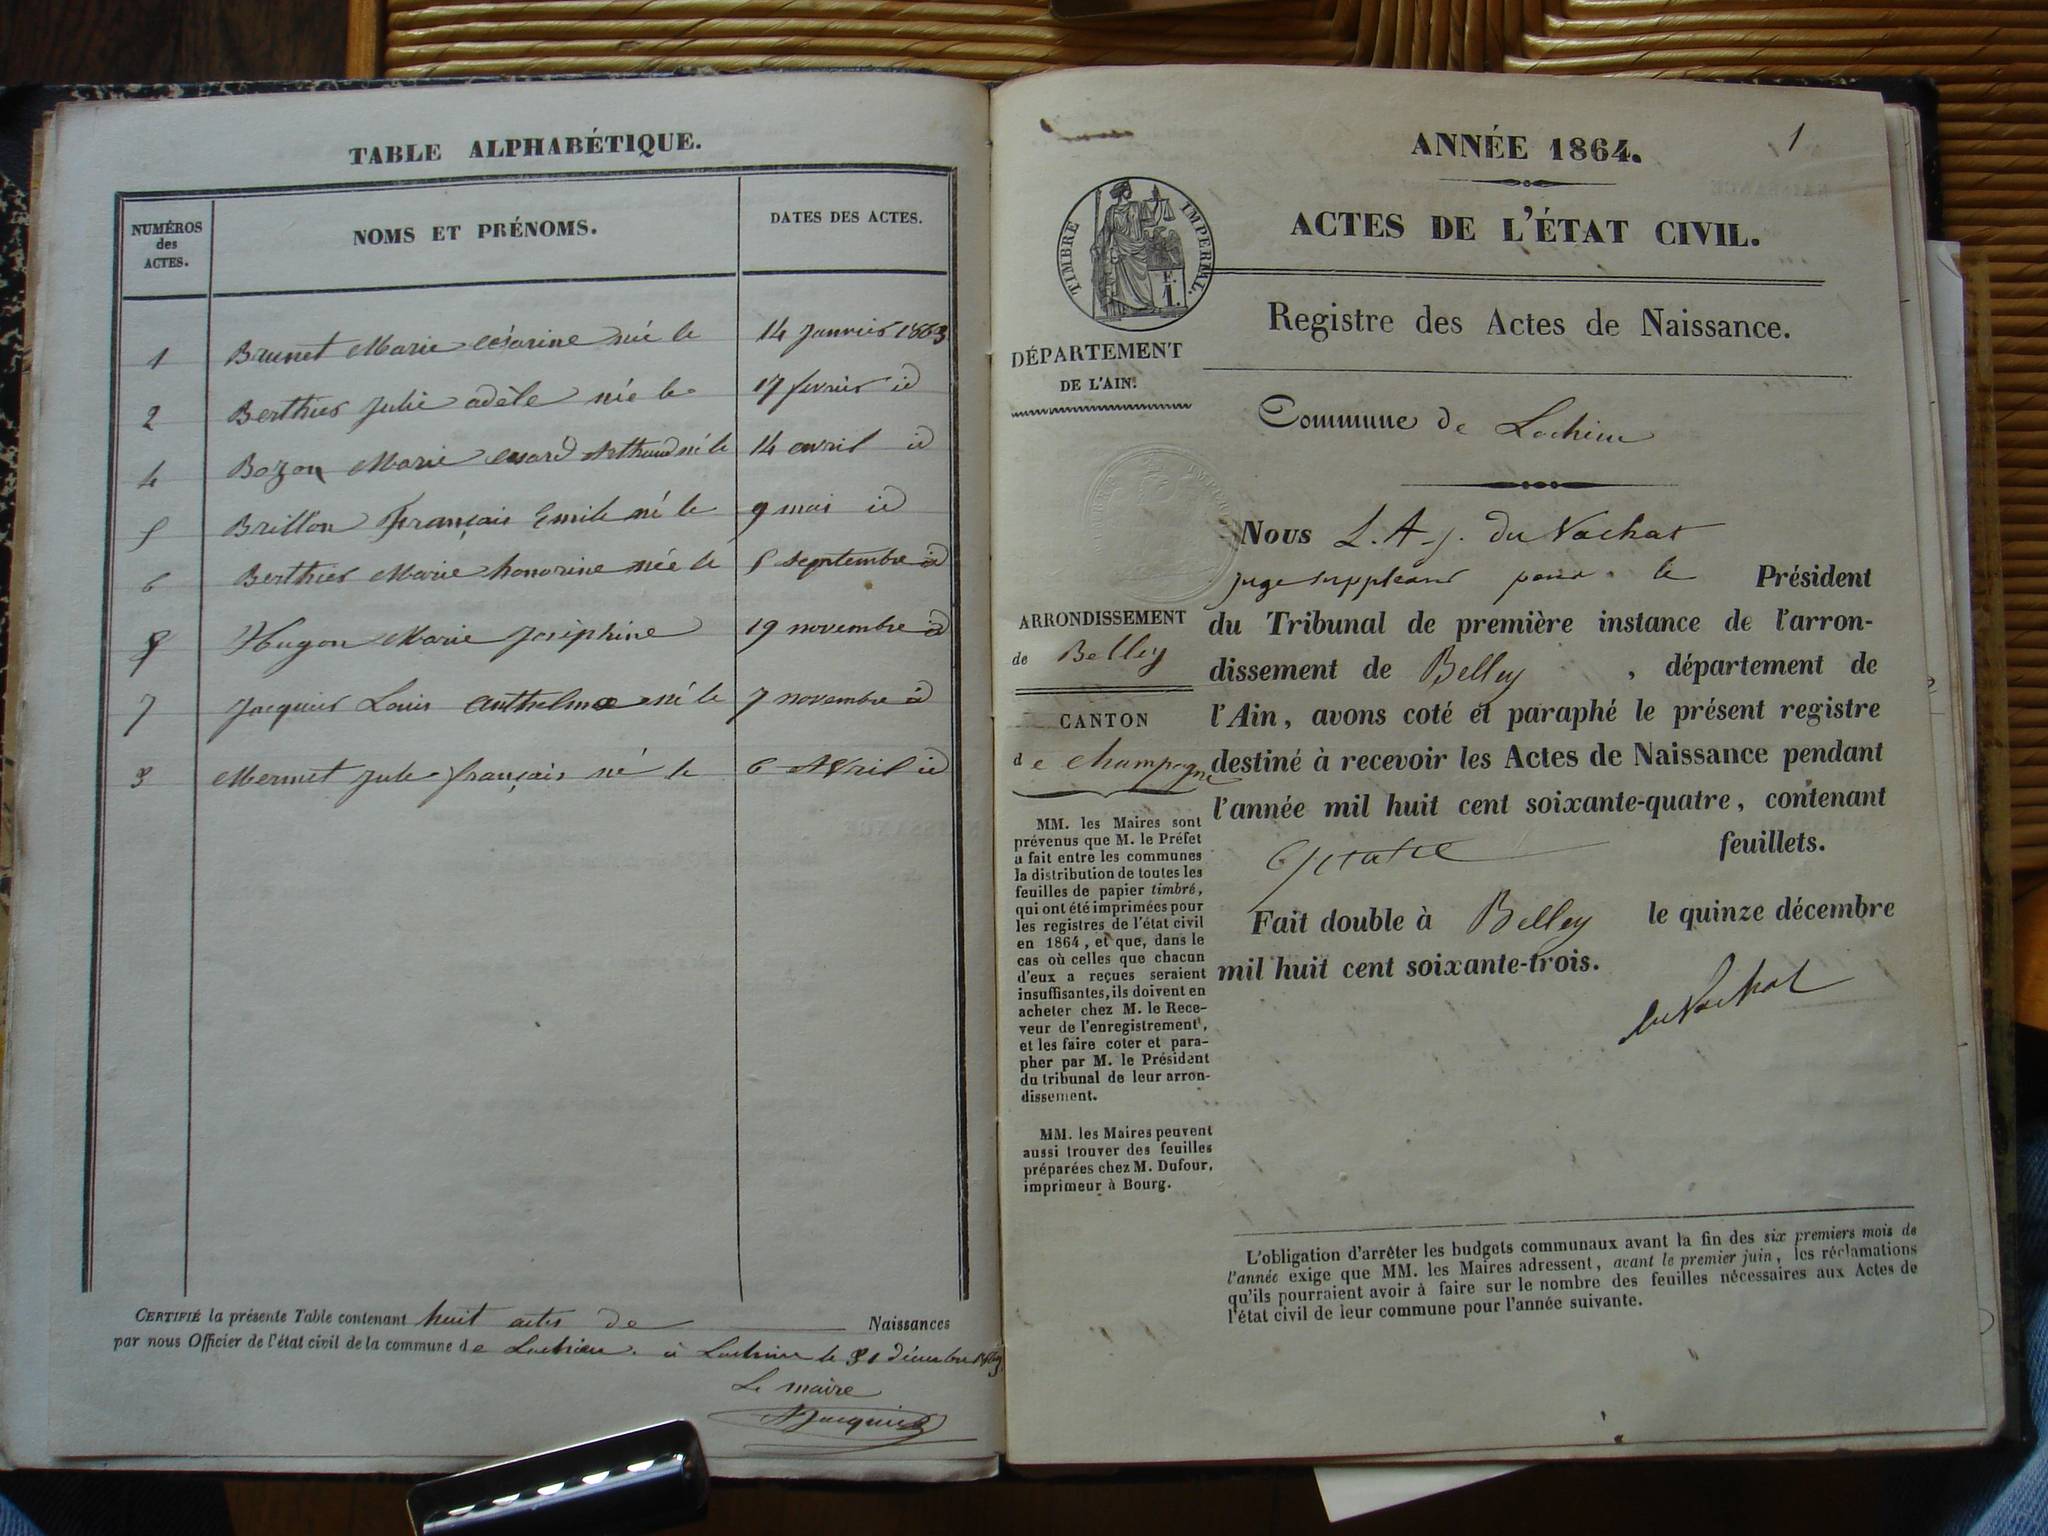 TABLE ALPHABÉTIQUE.
NUMÉROS des ACTES.
NOMS ET PRÉNOMS.
DATES DES ACTES.
1 Brunet Marie césarine née le 14 janvier 1863
2 Berthier Julie adèle née le 17 fevrier id
4 Bozon Marie Arthaud né le 14 avril id
5 Brillon Français Emile né le 9 mai id
6 Berthier Marie honorine née le 5 septembre id
8 Hugon Marie Joséphine 19 novembre id
7 Jacquier Louis Anthelme né le 7 novembre id
3 Mermet Jule français né le 6 Avril id
CERTIFIÉ la présente Table contenant huit actes de Naissances
par nous Officier de l'état civil de la commune de Lochieu. à Lochieu le 31 décembre 1863
Le maire
Jacquier
1
ANNÉE 1864.
ACTES DE L'ÉTAT CIVIL.
TIMBRE IMPERIAL.
F.
1.
Registre des Actes de Naissance.
DÉPARTEMENT
DE L'AIN.
Commune de Lochieu
Nous L. A. J. du Vachat
juge suppleant pour le Président
du Tribunal de première instance de l'arron-
dissement de Belley , département de
l'Ain, avons coté et paraphé le présent registre
destiné à recevoir les Actes de Naissance pendant
l'année mil huit cent soixante-quatre, contenant
feuillets.
Fait double à Belley le quinze décembre
mil huit cent soixante-trois.
du Vachat
ARRONDISSEMENT
de Belley
CANTON
de Champagne
MM. les Maires sont
prévenus que M. le Préfet
a fait entre les communes
la distribution de toutes les
feuilles de papier timbré,
qui ont été imprimées pour
les registres de l'état civil
en 1864, et que, dans le
cas où celles que chacun
d'eux a reçues seraient
insuffisantes, ils doivent en
acheter chez M. le Rece-
veur de l'enregistrement,
et les faire coter et para-
pher par M. le Président
du tribunal de leur arron-
dissement.
MM. les Maires peuvent
aussi trouver des feuilles
préparées chez M. Dufour,
imprimeur à Bourg.
L'obligation d'arrêter les budgets communaux avant la fin des six premiers mois de
l'année exige que MM. les Maires adressent, avant le premier juin, les réclamations
qu'ils pourraient avoir à faire sur le nombre des feuilles nécessaires aux Actes de
l'état civil de leur commune pour l'année suivante.